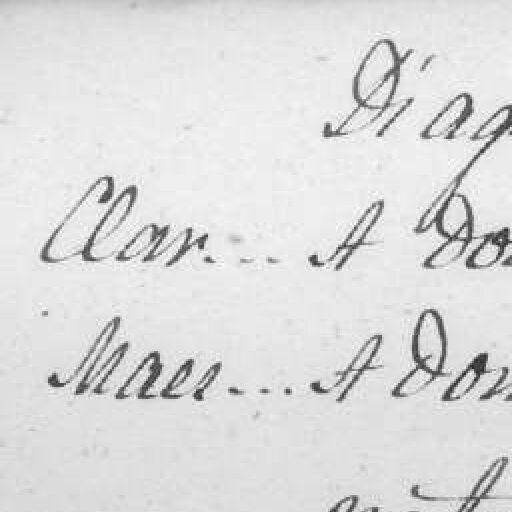 Diag
Clar... A don
Maes... A don